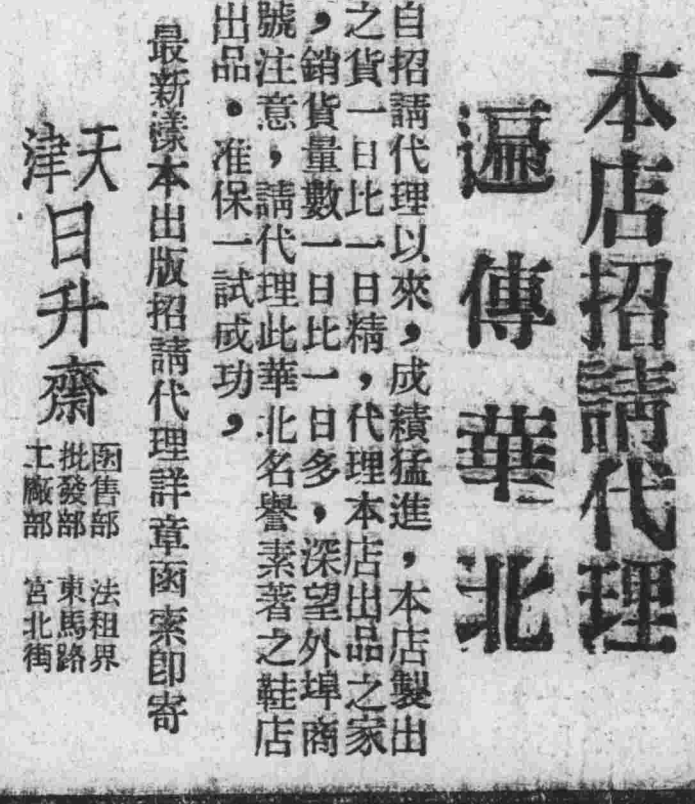 本店招請代理
遍傳華北
自招請代理以來，成績猛進，本店製出
之貨一日比一日精，代理本店出品之家
，銷貨量數一日比一日多，深望外埠商
號注意，請代理此華北名譽素著之鞋店
出品。准保一試成功，
最新漾本出版招請代理詳章函索卽寄
天津
日升齋
函售部 法租界
批發部 東馬路
工廠部 宮北街